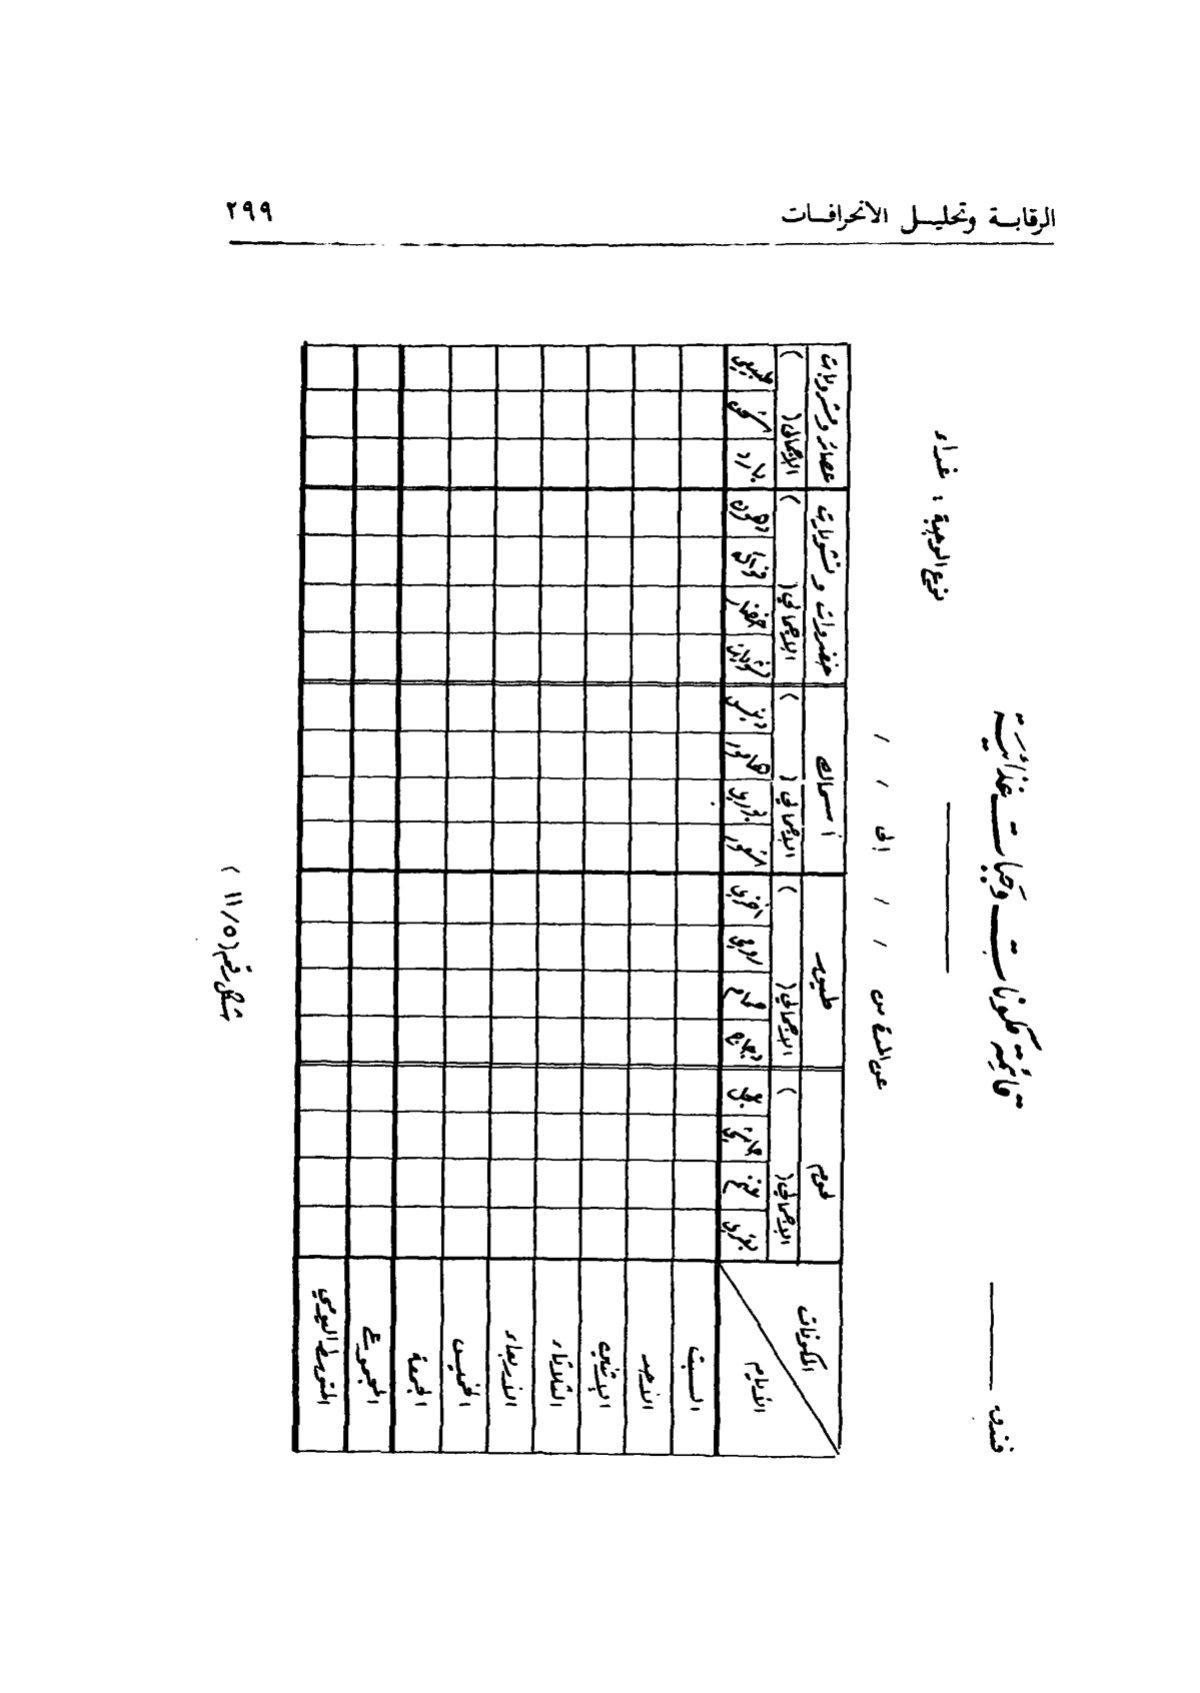 الرقابة وتحليل الانحرافات ٢٩٩
فندق
قائمة مكونات وجبات غذائية
نوع الوجبة : غداء
عن المدة من / / الى / /
المكونات
الأيام
لحوم
طيور
أسماك
خضروات ونشويات
عصائر ومشروبات
الإجمالي ( )
الإجمالي ( )
الإجمالي ( )
الإجمالي ( )
الإجمالي ( )
بقري
دجاج
حمام
رومي
أخرى
جمبري
خضار
أخرى
بارد
طبيعي
السبت
الأحد
الإثنين
الثلاثاء
الأربعاء
الخميس
الجمعة
المجموع
المتوسط اليومي
شكل رقم ( ١١/٥ )